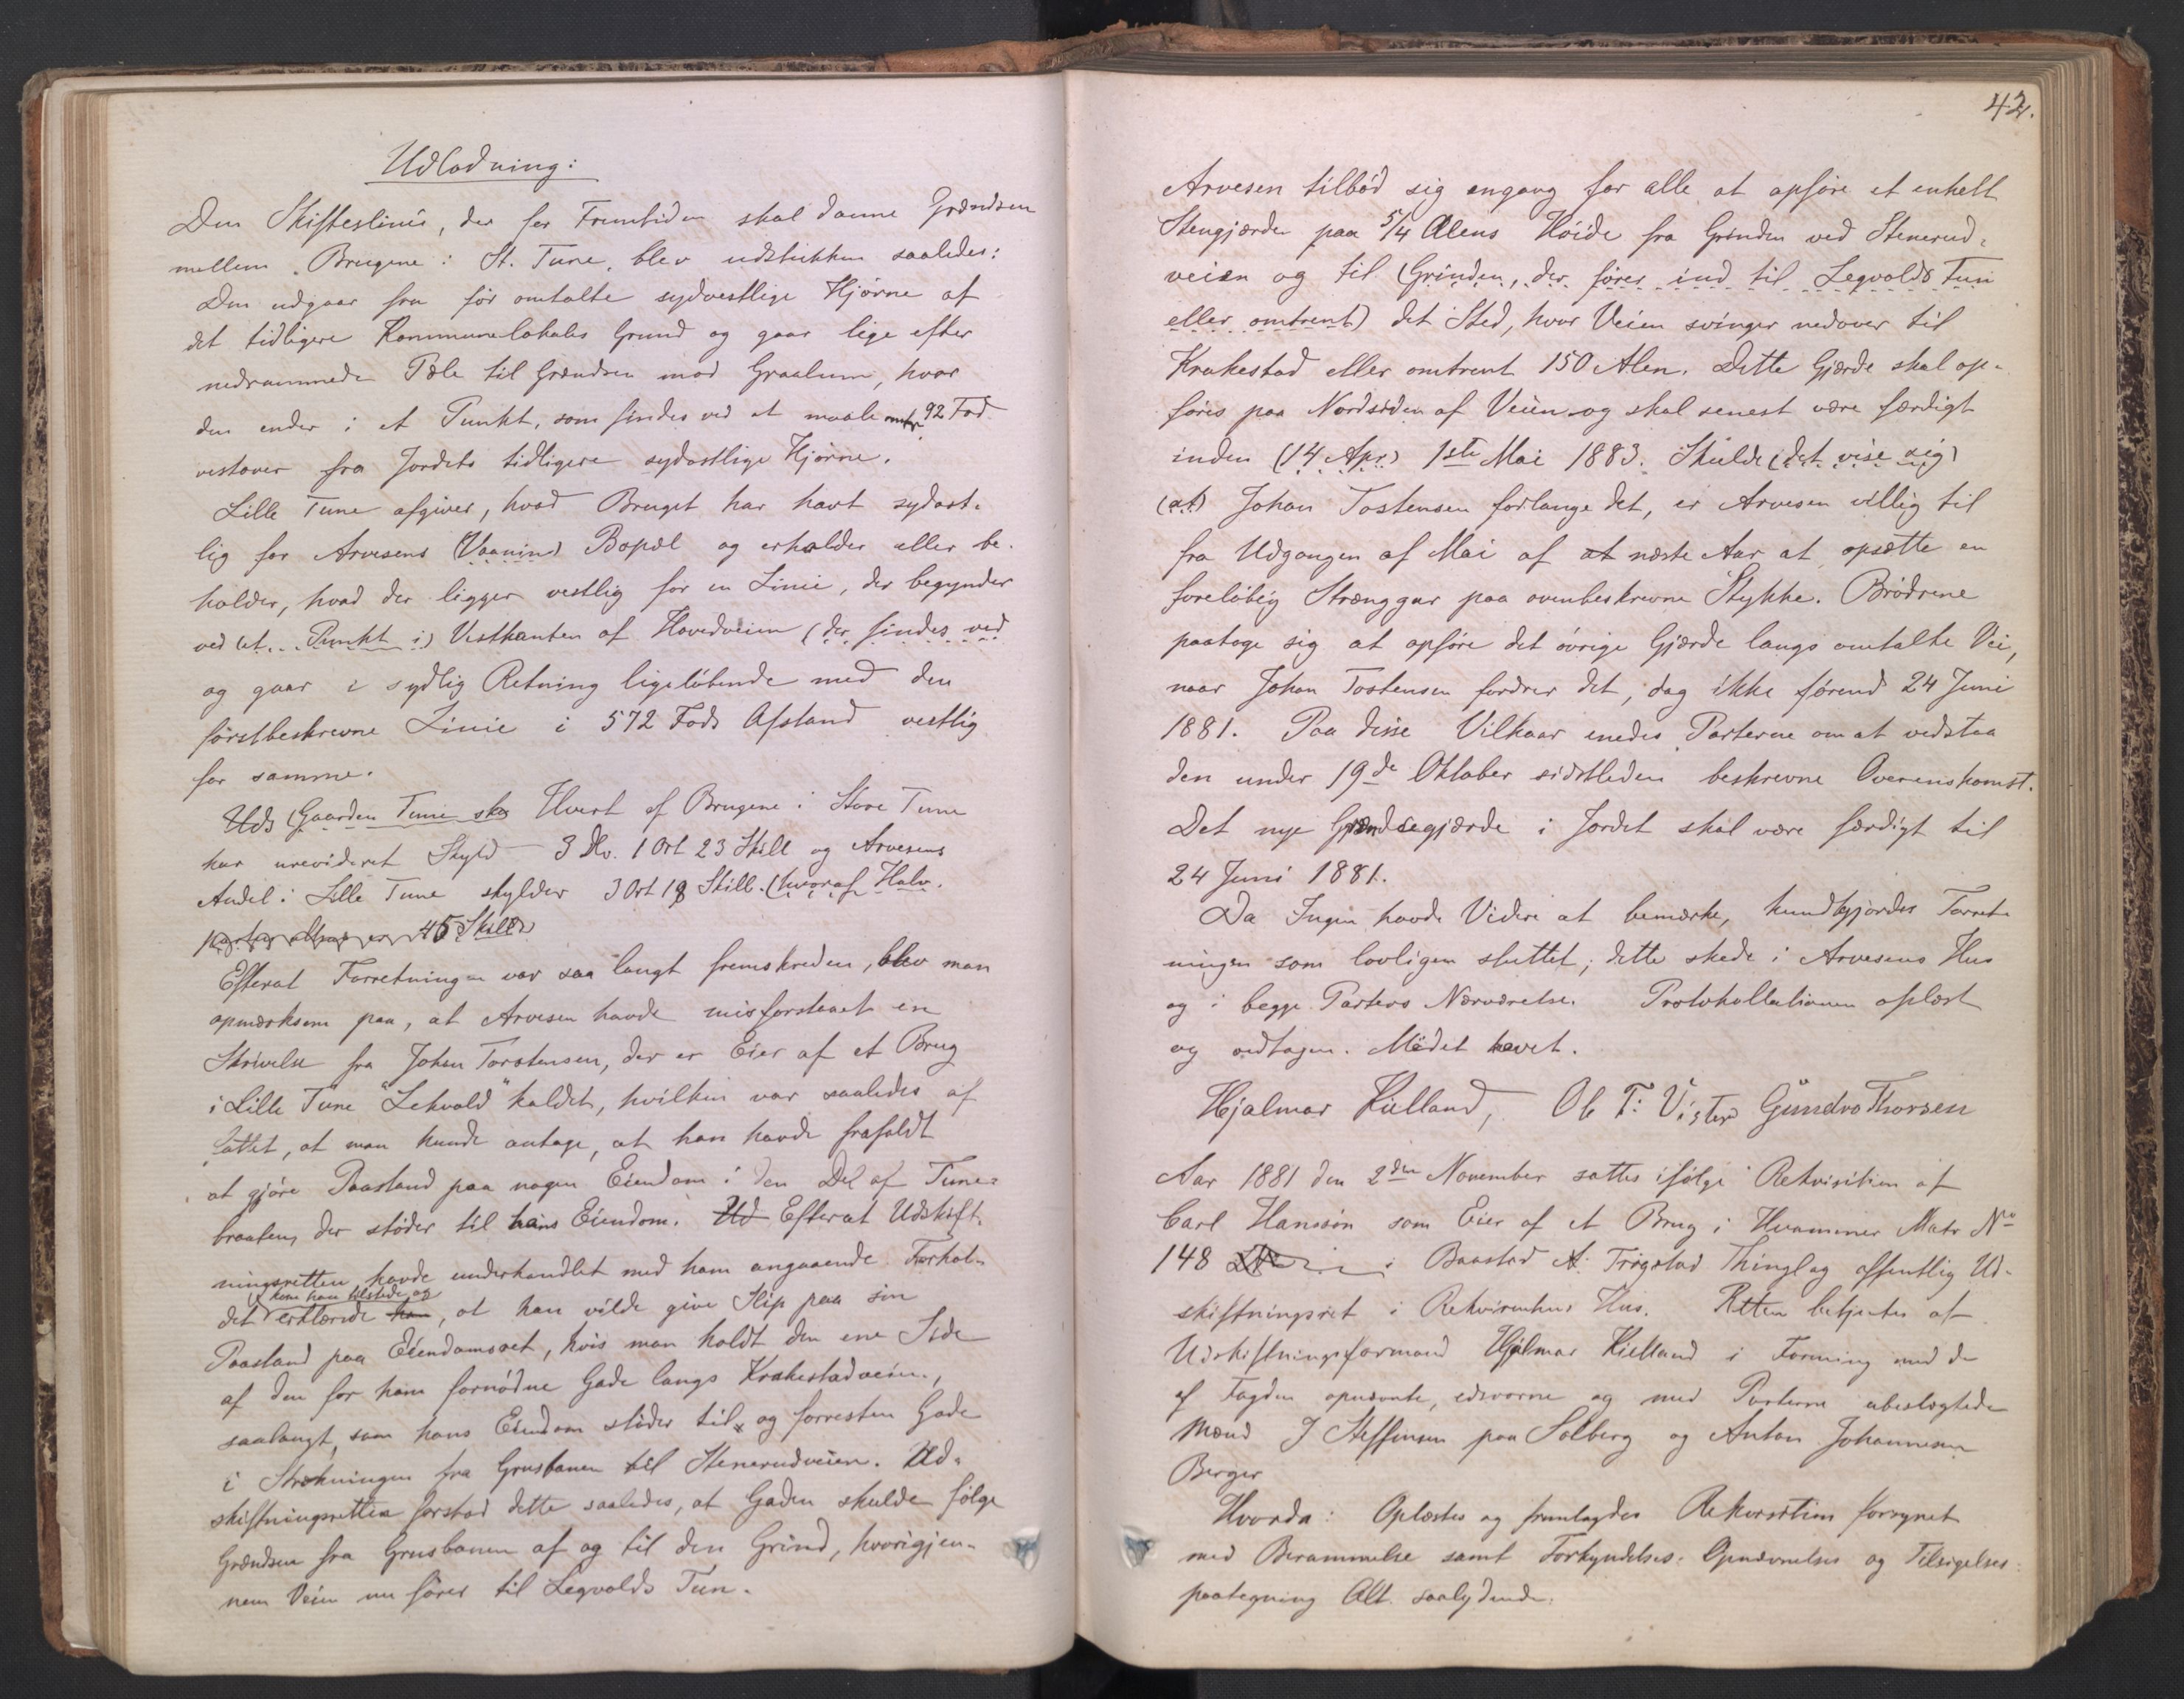 Udlodning:
Den Skifteslinie, der for Fremtiden skal danne Grændsen
mellem Brugene i St. Tune, blev udstukken saaledes:
Den udgaar fra før omtalte sydvestlige Hjørne af
det tidligere Kommunelokales Grund og gaar lige efter
nedrammede Pæle til Grændsen mod Graalum, hvor
den ender i et Punkt, som findes ved at maale omtr. 92 Fod
vestover fra Jordets tidligere sydøstlige Hjørne.
Lille Tune afgiver, hvad Bruget har havt sydøst-
lig for Arvesens (Vaanin) Bopæl og erholder eller be-
holder, hvad der ligger vestlig for en Linie, der begynder
ved (et Punkt i) Vestkanten af Hovedveien (der findes ved
og gaar i sydlig Retning ligeløbende med den
førstbeskrevne Linie i 572 Fods Afstand vestlig
for samme.
Uds (Gaarden Tune ska Hvert af Brugene i Store Tune
har urevideret Skyld 3 Dlr. 1 Ort 23 Skill og Arvesens
Andel i Lille Tune skylder 3 Ort 18 Skill. (hvoraf Halv-
parten altsaa er 45 Skill)
Efterat Forretningen var saa langt fremskreden, blev man
opmærksom paa, at Arvesen havde misforstaaet en
Skrivelse fra Johan Torstensen, der er Eier af et Brug
i Lille Tune "Lekvold" kaldet, hvilken var saaledes af
fattet, at man kunde antage, at han havde frafaldt
at gjøre Paastand paa nogen Eiendom i den Del af Tune-
braaten, der støder til hans Eiendom. Ud Efterat Udskift-
ningsretten havde underhandlet med ham angaaende Forhol-
det kom han tilstede og erklærede han, at han vilde give Slip paa sin
Paastand paa Eiendomsret, hvis man holdt den ene Side
af den for ham fornødne Gade langs Krakestadveien,
saalangt, som hans Eiendom støder til og forresten Gade
i Strækningen fra Grusbanen til Stenerudveien. Ud-
skiftningsretten forstod dette saaledes, at Gaden skulde følge
Grændsen fra Grusbanen af og til den Grind, hvorigjen-
nem Veien nu fører til Legvolds Tun.
42.
Arvesen tilbød sig engang for alle at opføre et enkelt
Stengjærde paa 5/4 Alens Høide fra Grinden ved Stenerud-
veien og til (Grinden, der fører ind til Legvolds Tun
eller omtrent) det Sted, hvor Veien svinger nedover til
Krakestad eller omtrent 150 Alen. Dette Gjærde skal op-
føres paa Nordsiden af Veien og skal senest være færdigt
inden (14 Apr.) 1ste Mai 1883. Skulde (det vise sig)
(at) Johan Tostensen forlange det, er Arvesen villig til
fra Udgangen af Mai af at næste Aar at opsætte en
foreløbig Strænggar paa ovenbeskrevne Stykke. Brødrene
paatoge sig at opføre det øvrige Gjærde langs omtalte Vei,
naar Johan Tostensen fordrer det, dog ikke førend 24 Juni
1881. Paa disse Vilkaar enedes Parterne om at vedstaa
den under 19de Oktober sidstleden beskrevne Overenskomst.
Det nye Grændsegjærde i Jordet skal være færdigt til
24 Juni 1881.
Da Ingen havde Videre at bemærke, kundgjordes Forret-
ningen som lovligen sluttet; dette skede i Arvesens Hus
og i begge Parters Nærværelse. Protokollationen oplæst
og vedtagen. Mødet hævet.
Hjalmar Kielland, Ole T: Vister Gundro Thorsen
Aar 1881 den 2den November sattes ifølge Rekvisition af
Carl Hanssøn som Eier af et Brug i Hvammer Matr No
148 i Baastad A: Trøgstad Thinglag offentlig Ud-
skiftningsret i Rekvirentens Hus. Retten betjentes af
Udskiftningsformand Hjalmar Kielland i Forening med de
af Fogden opnævnte, edsvorne og med Parterne ubeslægtede
Mænd J Steffensen paa Solberg og Anton Johannesen
Berger
Hvorda: Oplæstes og fremlagdes Rekvisition forsynet
med Berammelse samt Forkyndelses- Opnævnelses og Tilsigelses-
paategning Alt saalydende: